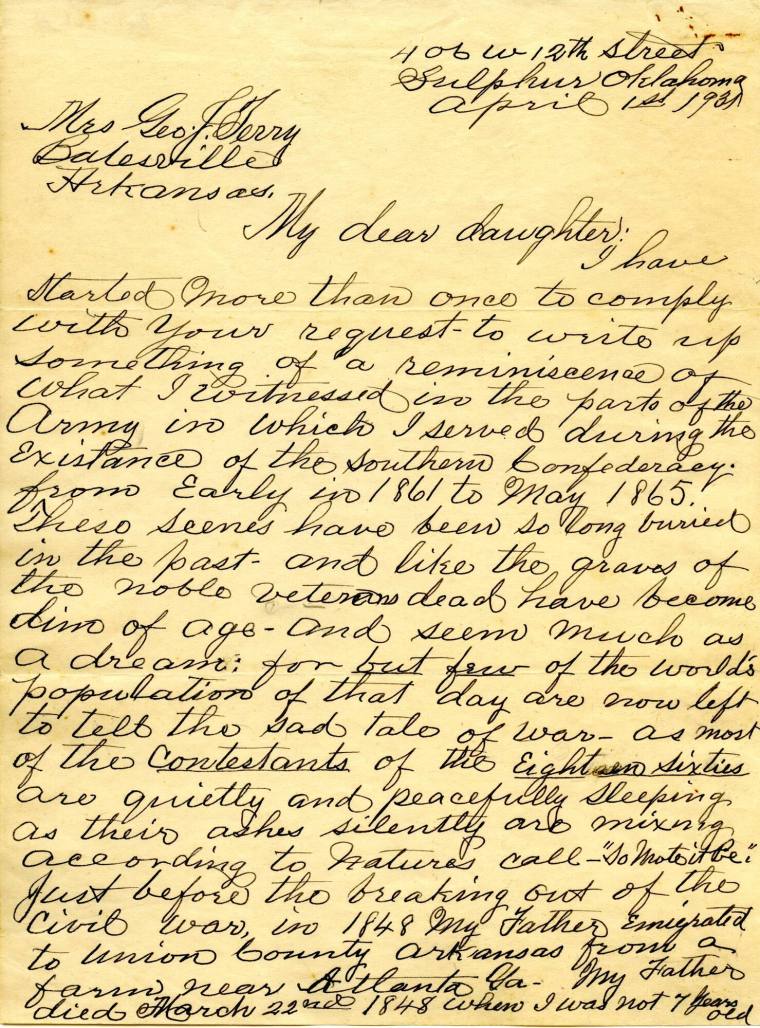 406 W 12th Street
Sulphur Oklahoma
April 1st, 1931
Mrs Geo. J. Terry
Batesville
Arkansas.
My dear daughter:
I have
started More than once to comply
with Your request - to write up
something of a reminiscence of
what I witnessed in the parts of the
Army in which I served during the
Existance of the southern Confederacy.
from Early in 1861 to May 1865.
These scenes have been so long buried
in the past - and like the graves of
the noble veterans dead have become
dim of age - and seem much as
a dream: for but few of the world's
population of that day are now left
to tell the sad tale of war - as most
of the Contestants of the Eighteen sixties
are quietly and peacefully sleeping
as their ashes silently are mixing
according to Natures call - "So Mote it Be".
Just before the breaking out of the
Civil War, in 1848 My Father Emigrated
to Union County Arkansas from a
farm near Atlanta Ga - My Father
died March 22nd 1848 when I was not 7 Years
old